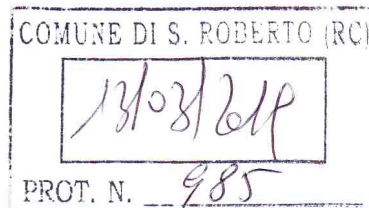 COMUNE DI S. ROBERTO (RC)
13/03/2019
PROT. N. 985